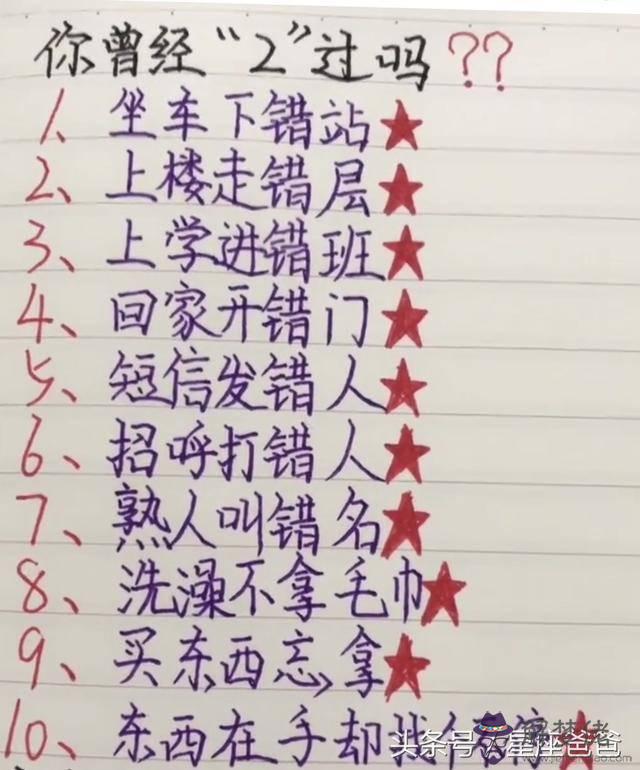 你曾经“2”过吗??
1、坐车下错站★
2、上楼走错层★
3、上学进错班★
4、回家开错门★
5、短信发错人★
6、招呼打错人★
7、熟人叫错名★
8、洗澡不拿毛巾★
9、买东西忘拿★
10、东西在手却找★
头条号 / 星座爸爸
解梦佬